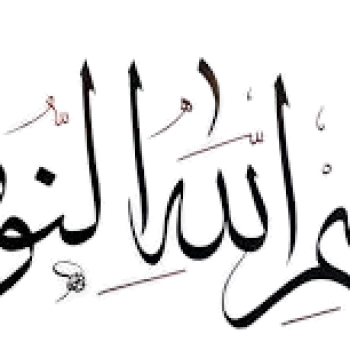 مِ اللّٰه النُّو